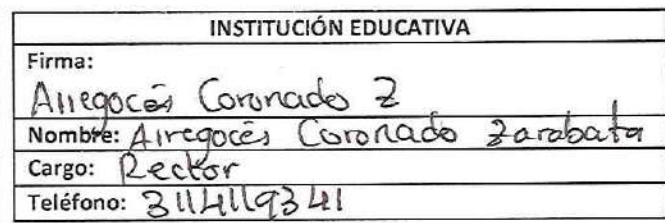 INSTITUCIÓN EDUCATIVA
Firma:
Arregocés Coronado Z
Nombre: Arregocés Coronado Zarabata
Cargo: Rector
Teléfono: 3114119341